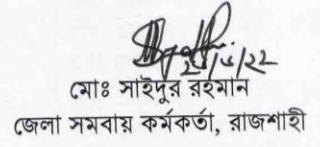 মোঃ সাইদুর রহমান
জেলা সমবায় কর্মকর্তা, রাজশাহী